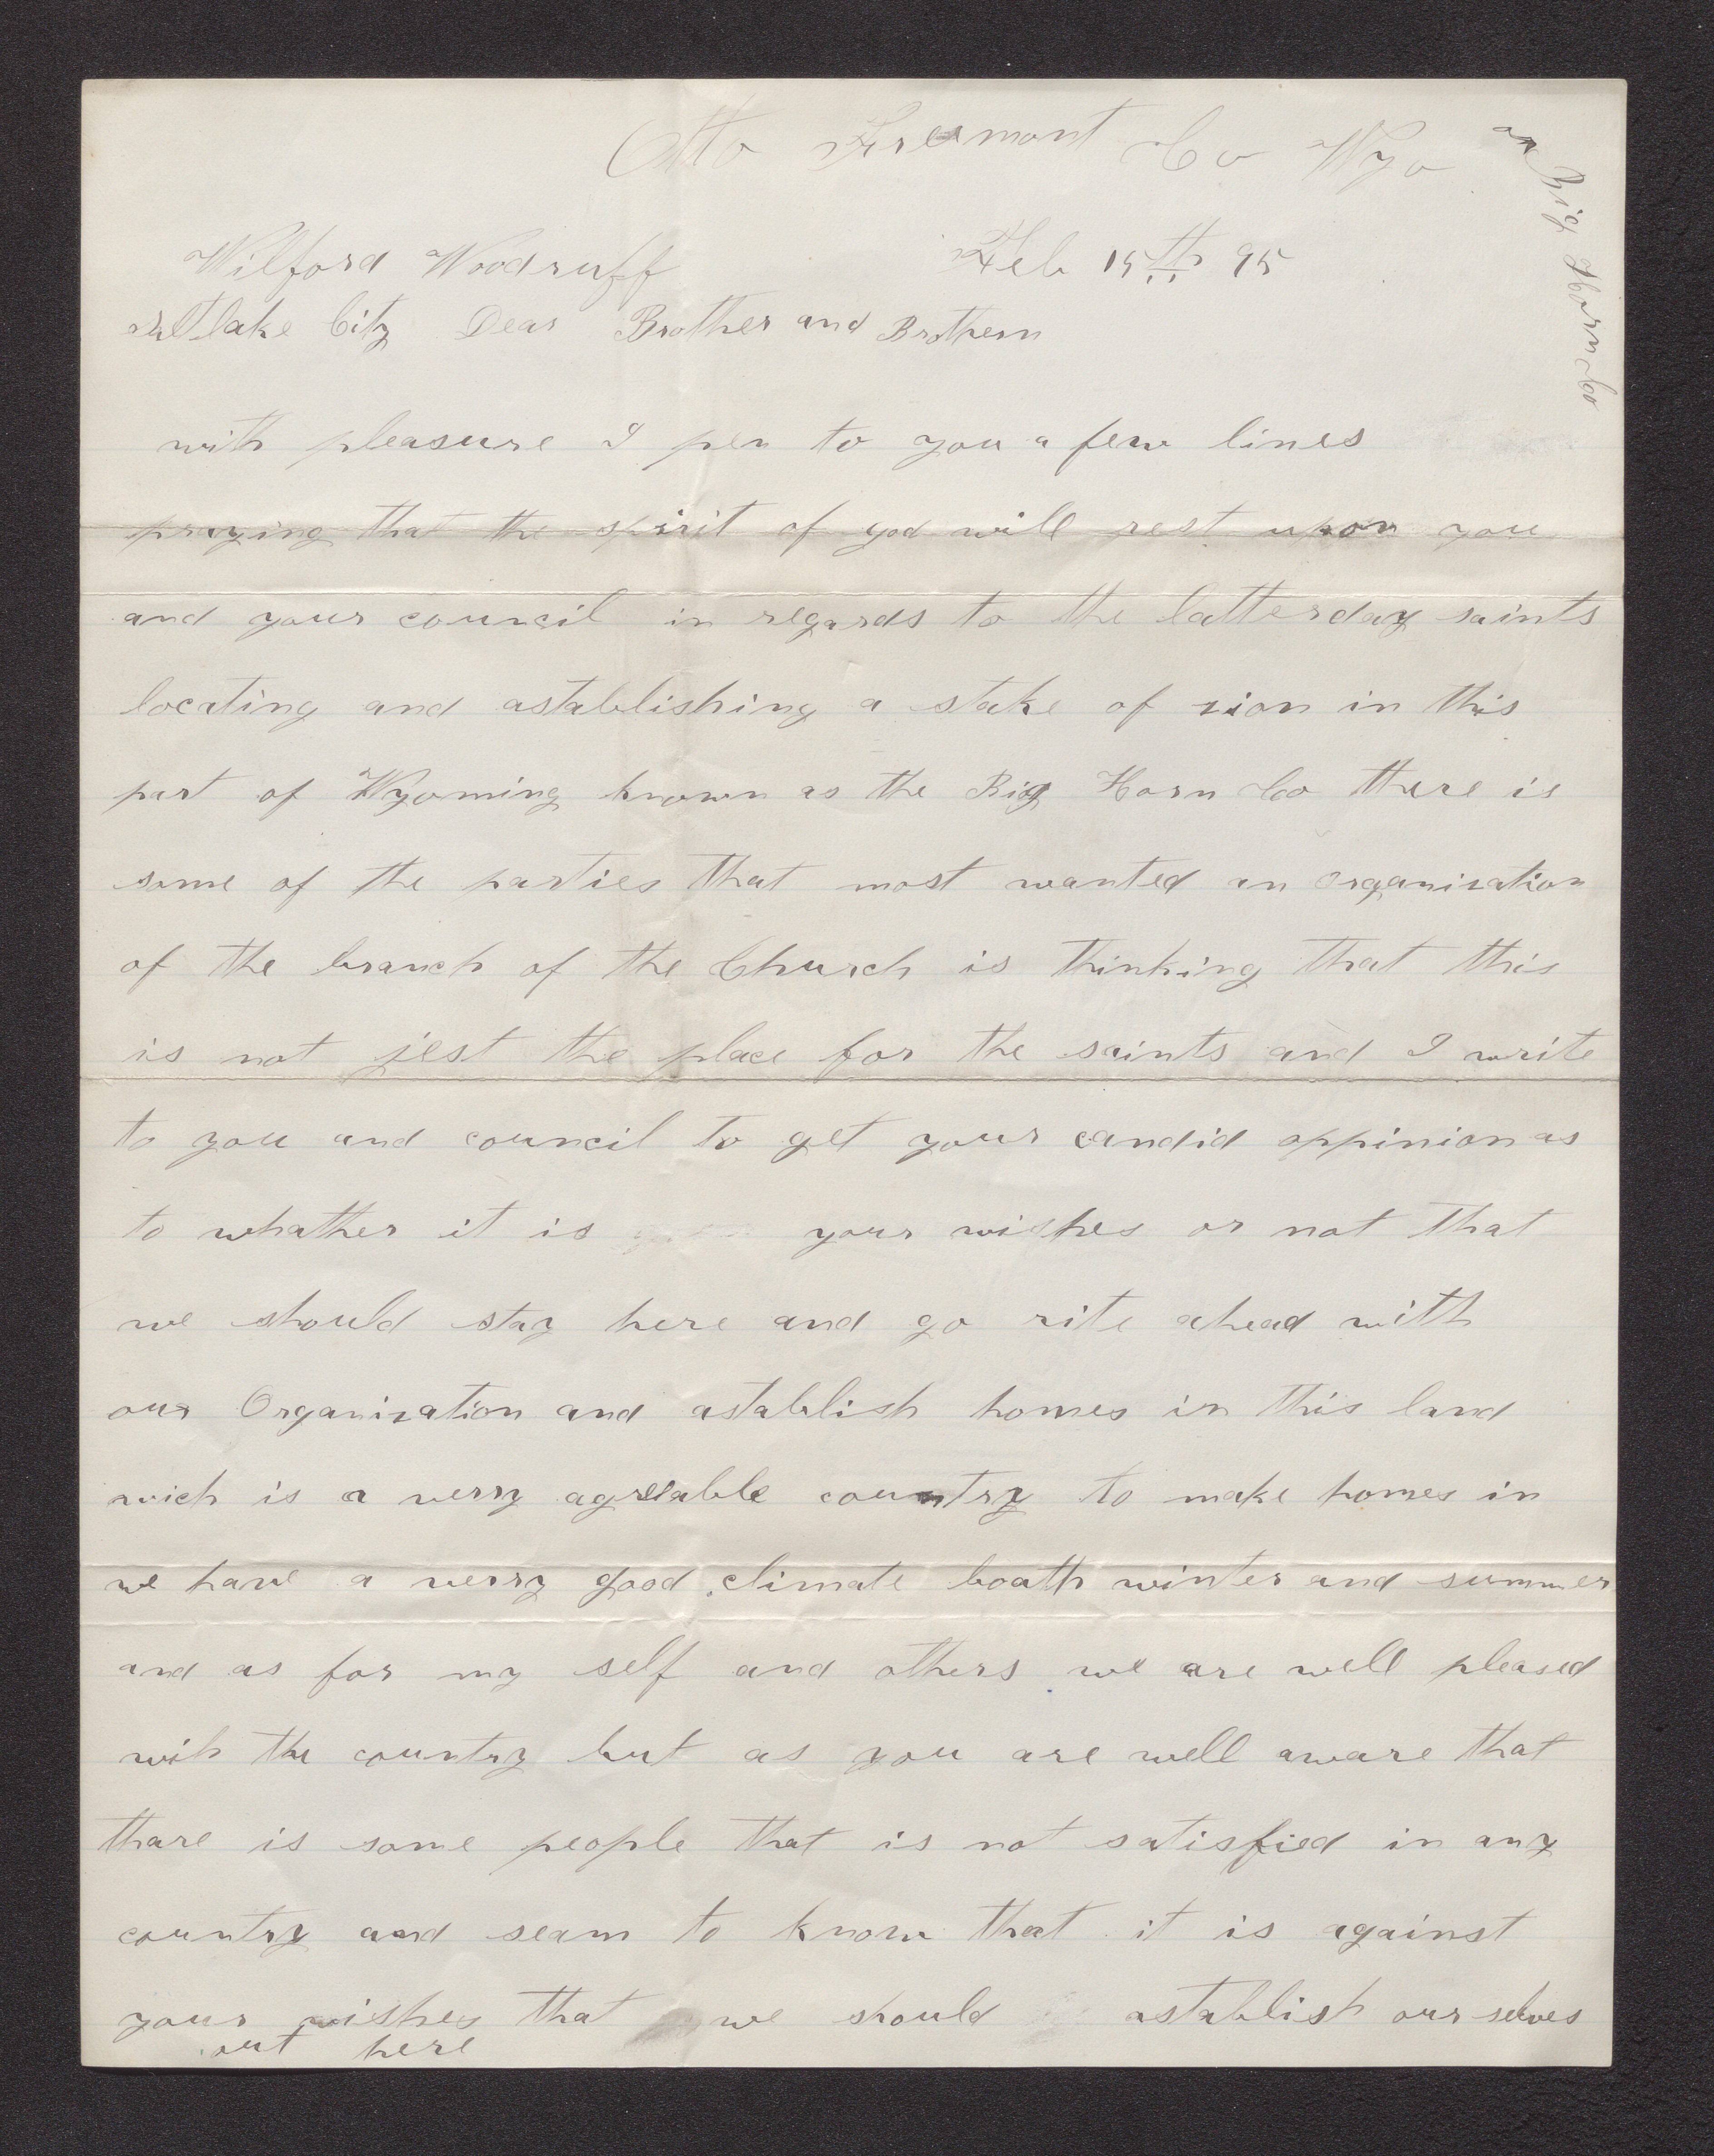 Otto Freemont Co Wyo
or Big Horn Co
Wilford Woodruff Feb 15th 95
Saltlake City Dear Brother and Brothern
with pleasure I pen to you a few lines
praying that the spirit of god will rest upon you
and your council in regards to the latterday saints
locating and astablishing a stake of zion in this
part of Wyoming known as the Big Horn Co there is
some of the parties that most wanted an organization
of the branch of the Church is thinking that this
is not jest the place for the saints and I write
to you and council to get your candid oppinion as
to whather it is your wishes or not that
we should stay here and go rite ahead with
our Organization and astablish homes in this land
wich is a verry agreiable country to make homes in
we have a verry good climate boath winter and summer
and as for my self and others we are well pleased
with the country but as you are well aware that
thare is some people that is not satisfied in any
country and seam to know that it is against
your wishes that we should astablish our selves
out here